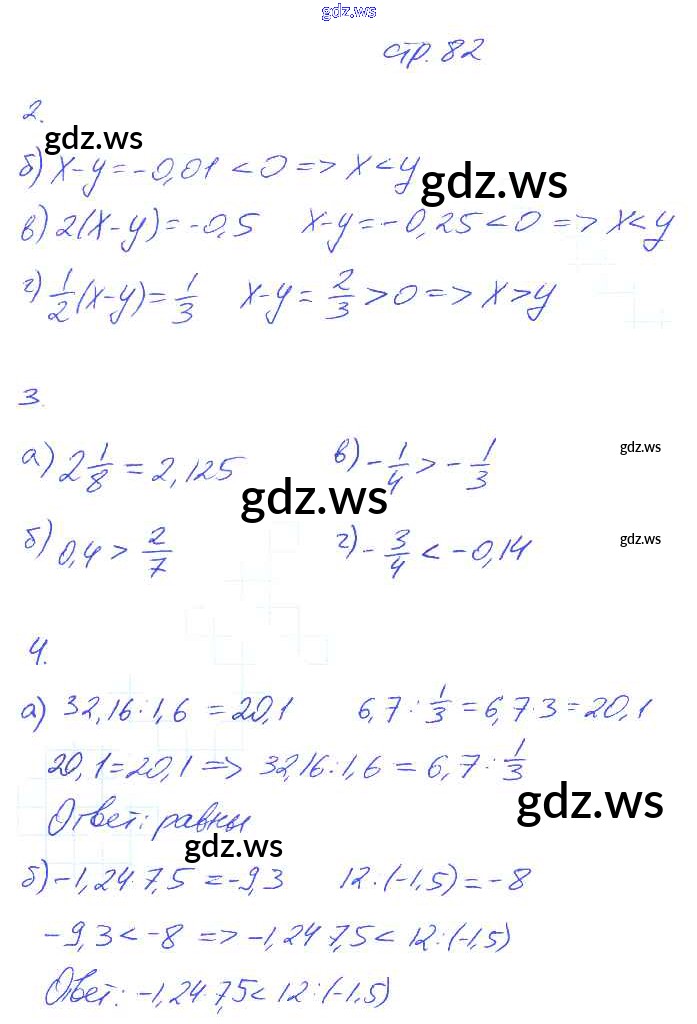 gdz.ws
стр. 82
2.
gdz.ws
б) x-y = -0,01 < 0 => x < y
gdz.ws
в) 2(x-y) = -0,5 x-y = -0,25 < 0 => x < y
г) 1/2(x-y) = 1/3 x-y = 2/3 > 0 => x > y
3.
а) 2 1/8 = 2,125 в) -1/4 > -1/3
gdz.ws
gdz.ws
б) 0,4 > 2/7 г) -3/4 < -0,14
gdz.ws
4.
а) 32,16 : 1,6 = 20,1 6,7 : 1/3 = 6,7 · 3 = 20,1
20,1 = 20,1 => 32,16 : 1,6 = 6,7 : 1/3
gdz.ws
Ответ: равны
gdz.ws
б) -1,24 · 7,5 = -9,3 12 : (-1,5) = -8
-9,3 < -8 => -1,24 · 7,5 < 12 : (-1,5)
Ответ: -1,24 · 7,5 < 12 : (-1,5)